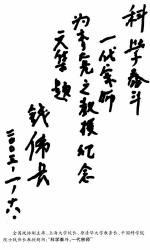 科学泰斗
一代宗师
为李先之教授纪念
文集题
钱伟长
二〇〇三、一、十六
全国政协副主席、上海大学校长、原清华大学教务长、中国科学院
院士钱伟长教授题词：“科学泰斗，一代宗师”